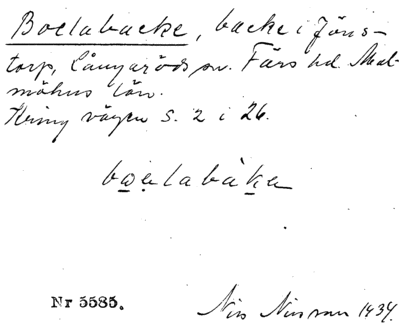 Boelabacke, backe i Jöns-
torp, Långaröds sn. Färs hd Mal-
möhus län.
vägen S. 2 i 26.
boelabàka
Nr 5585.
Nils Nilsson 1934.